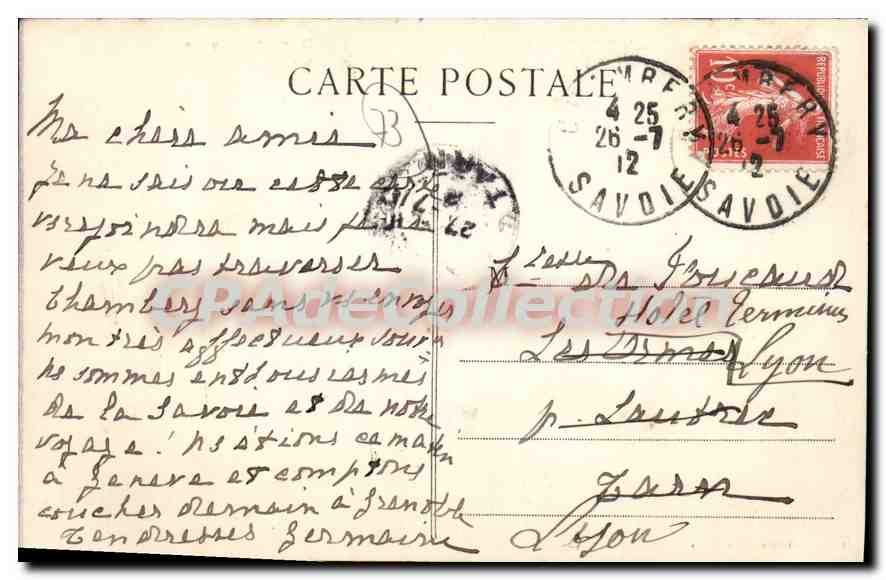 CARTE POSTALE
73
Ma chers amis
Je ne sais où cette carte
v. rejoindra mais je ne
veux pas traverser
Chambéry sans vs envoyer
mon très affectueux souvr
Ns sommes enthousiasmés
de la Savoie et de notre
voyage! Ns étions ce matin
à Genève et comptons
coucher demain à Grenoble
Tendresses Germaine
de Foucaud
Hotel Terminus
Les Ormes Lyon
p. Lautrec
Tarn
Lyon
CHAMBERY
4 25
26 -7
12
SAVOIE
MBERY
4 25
26 -7
12
SAVOIE
10 c
REPUBLIQUE FRANÇAISE
POSTES
CPAdeCollection.com